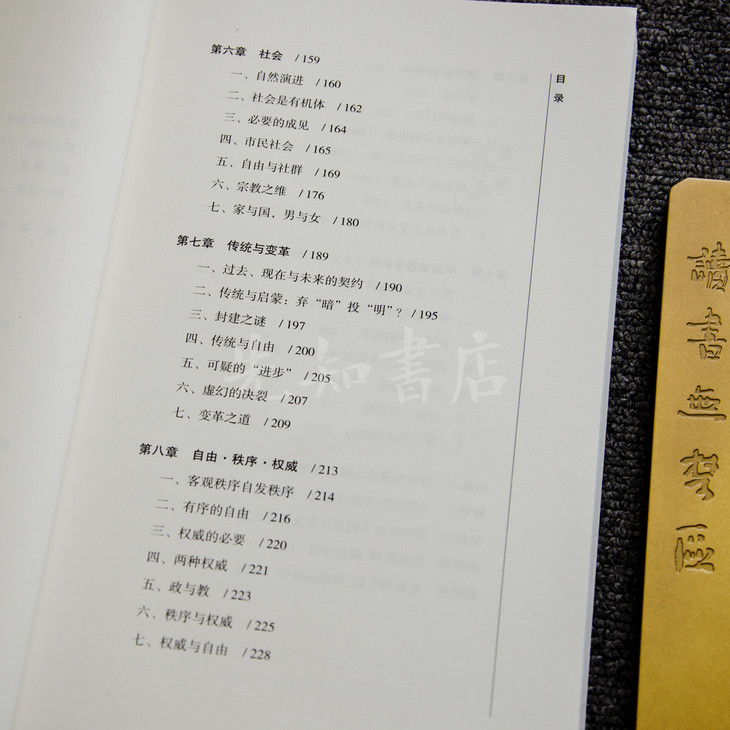 目录
第六章 社会 /159
一、自然演进 /160
二、社会是有机体 /162
三、必要的成见 /164
四、市民社会 /165
五、自由与社群 /169
六、宗教之维 /176
七、家与国，男与女 /180
第七章 传统与变革 /189
一、过去、现在与未来的契约 /190
二、传统与启蒙：弃“暗”投“明”？/195
三、封建之谜 /197
四、传统与自由 /200
五、可疑的“进步” /205
六、虚幻的决裂 /207
七、变革之道 /209
第八章 自由·秩序·权威 /213
一、客观秩序自发秩序 /214
二、有序的自由 /216
三、权威的必要 /220
四、两种权威 /221
五、政与教 /223
六、秩序与权威 /225
七、权威与自由 /228
先知書店
讀書無禁區